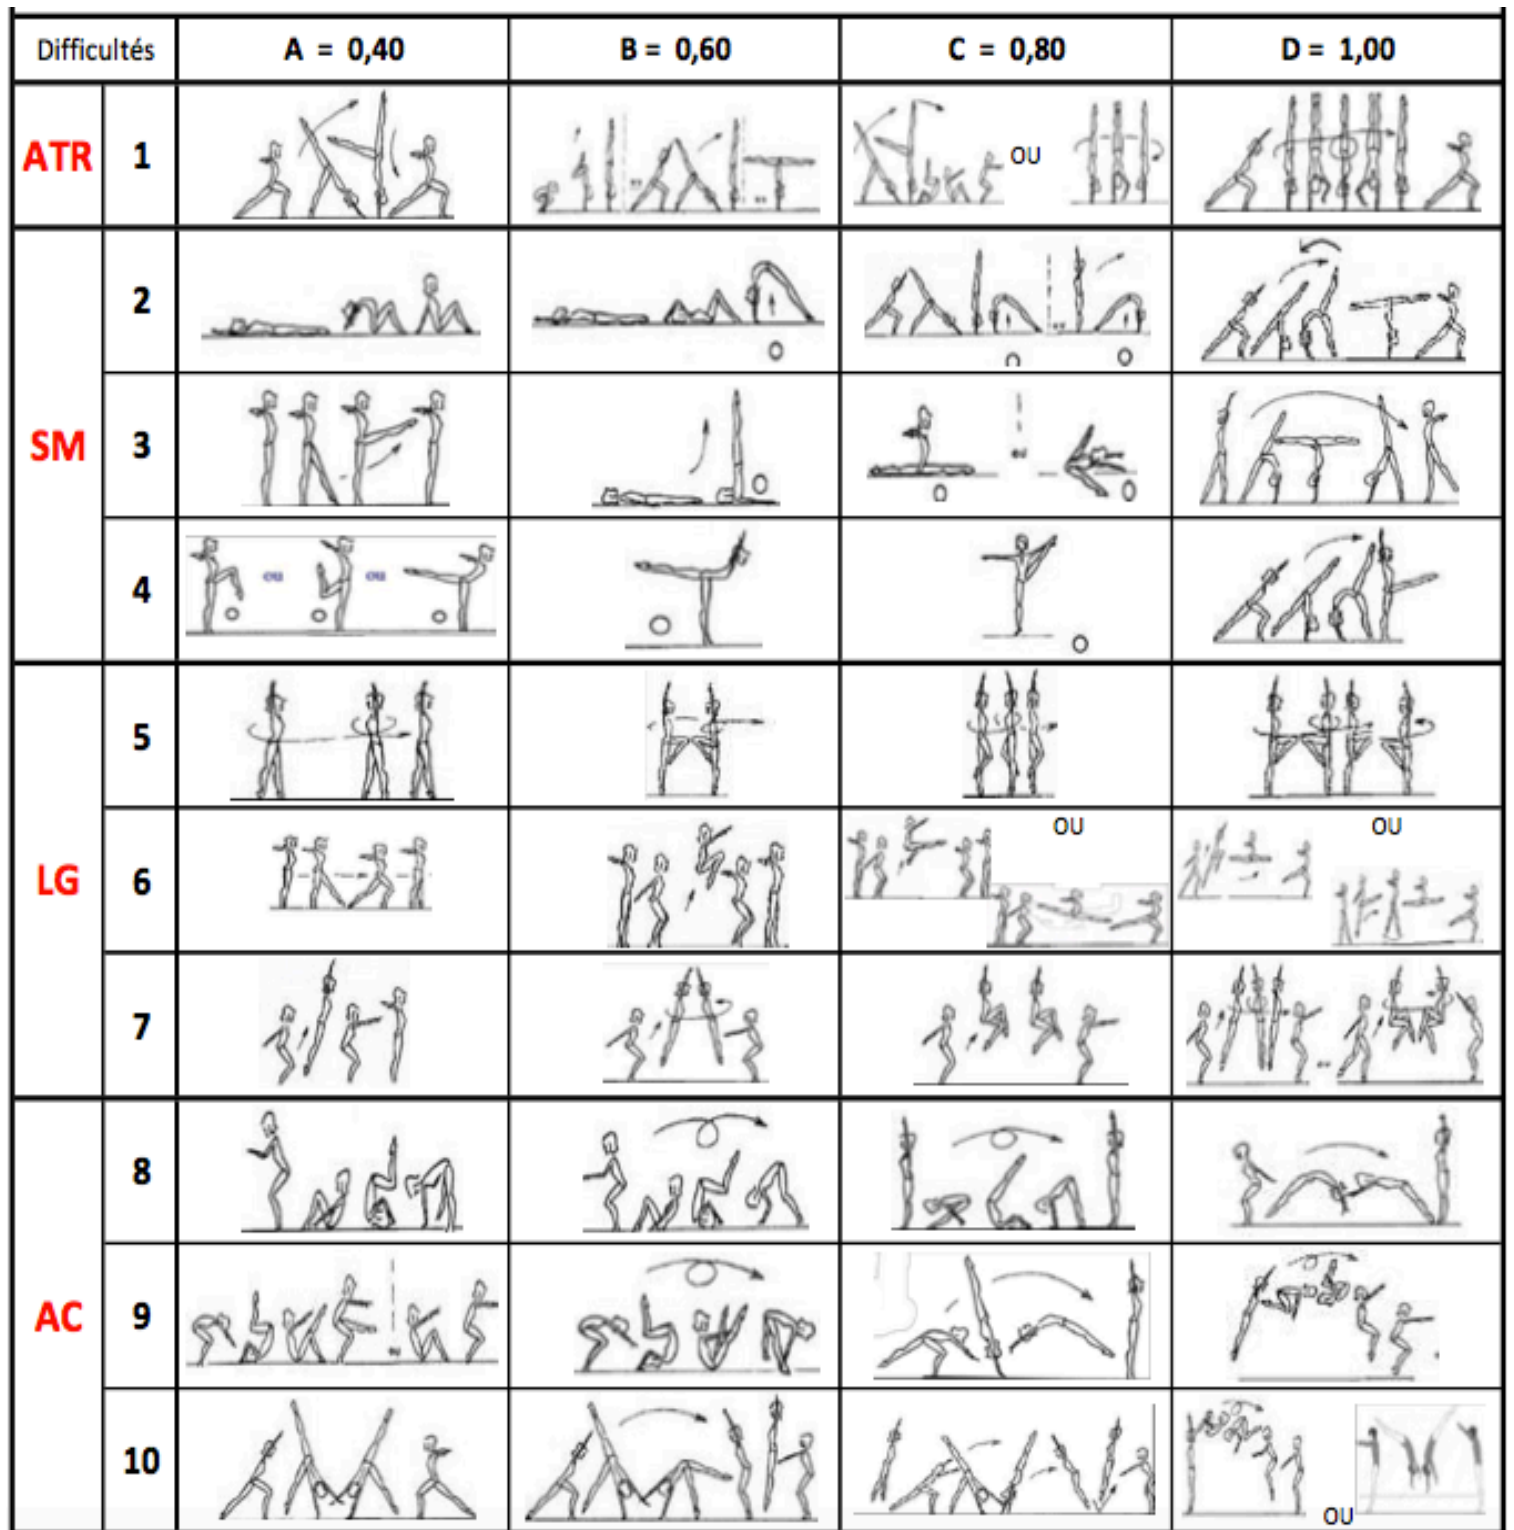 Difficultés A = 0,40 B = 0,60 C = 0,80 D = 1,00
ATR 1
OU
2
SM 3
4
ou ou
5
LG 6
OU OU
7
8
AC 9
10
OU